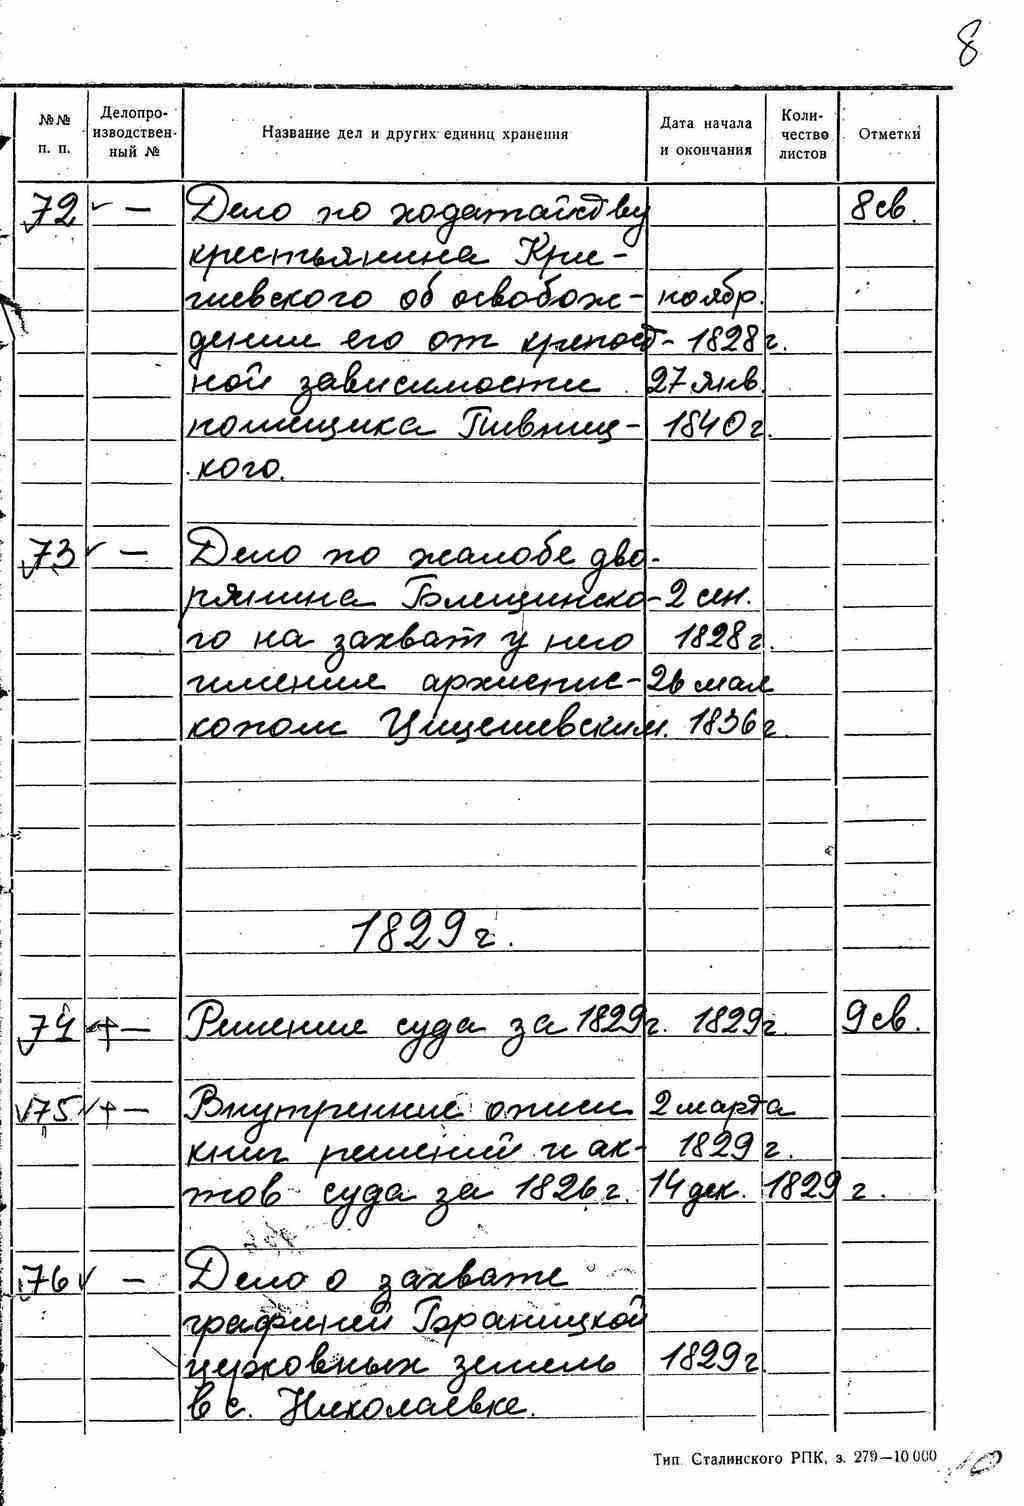 8
№№ п. п. Делопроизводственный № Название дел и других единиц хранения Дата начала и окончания Количество листов Отметки
72 — Дело по ходатайству 8 св.
крестьянина Кри-
невского об освобож- ноябр.
дении его от крепост- 1828 г.
ной зависимости 27 янв.
помещика Пивниц- 1840 г.
кого.
73 — Дело по жалобе дво-
рянина Блещинско- 2 сен.
го на захват у него 1828 г.
имения архиепис- 26 мая
копом Цицешевским. 1836 г.
1829 г.
74 + — Решения суда за 1829 г. 1829 г. 9 св.
75 + — Внутренние описи 2 марта
книг решений и ак- 1829 г.
тов суда за 1826 г. 14 дек. 1829 г.
76 — Дело о захвате
графиней Браницкой
церковных земель 1829 г.
в с. Николаевке.
Тип. Сталинского РПК, з. 279—10 000
10